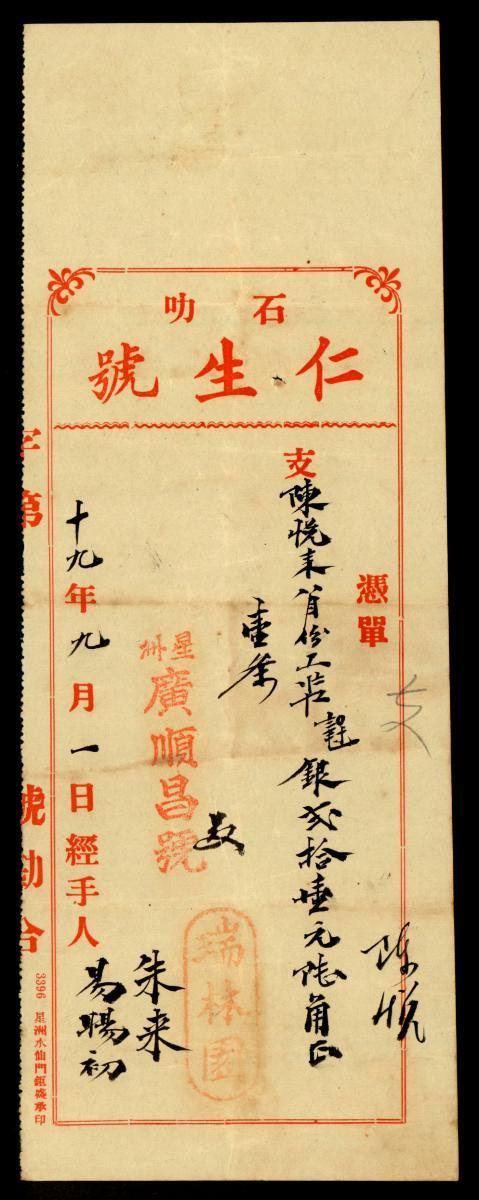 石叻
仁生號
憑單
支
支陳悅來八月份工銀弍拾壹元陸角正
陳悅
壹條
星洲
廣順昌號
瑞林園
十九年九月一日經手人
朱来
易暢初
字第 號勘合
3396 星洲水仙門鉅盛承印